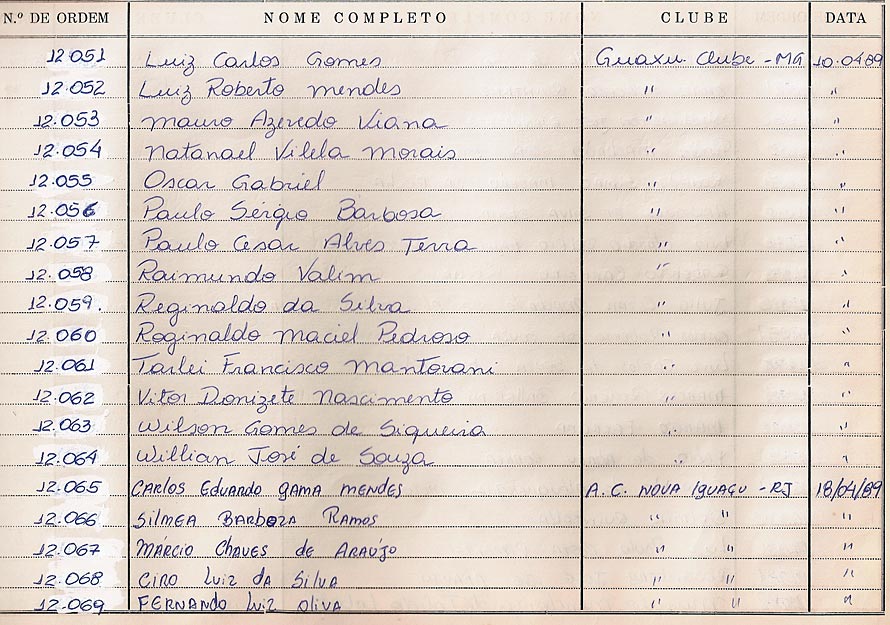 N.º DE ORDEM NOME COMPLETO CLUBE DATA
12.051 Luiz Carlos Gomes Guaxu. Clube - MG 10.04.89
12.052 Luiz Roberto mendes " "
12.053 mauro Azevedo Viana " "
12.054 Natanael Vilela morais " "
12.055 Oscar Gabriel " "
12.056 Paulo Sérgio Barbosa " "
12.057 Paulo Cesar Alves Terra " "
12.058 Raimundo Valim " "
12.059. Reginaldo da Silva " "
12.060 Roginaldo maciel Pedroso " "
12.061 Tarlei Francisco mantovani " "
12.062 Vitor Donizete nascimento " "
12.063 Wilson Gomes de Siqueira " "
12.064 Willian José de Souza " "
12.065 CARLOS EDUARDO GAMA MENDES A.C. NOVA IGUAÇU - RJ 18/04/89
12.066 SILMEA BARBOZA RAMOS " " "
12.067 MÁRCIO CHAVES de ARAÚJO " " "
12.068 CIRO LUIZ DA SILVA " " "
12.069 FERNANDO LUIZ OLIVA " " "